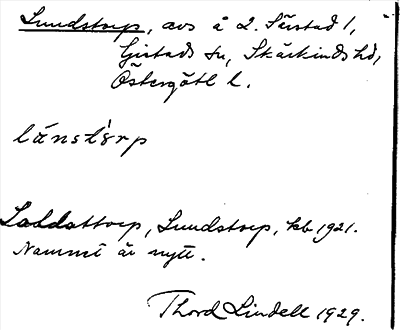 Lundstorp, avs å 2. Sörstad 1,
Gistads sn, Skärkinds hd,
Östergötl l.
lánstòrp
Soldattorp, Lundstorp, kb 1921.
Namnet är nytt.
Thord Lindell 1929.